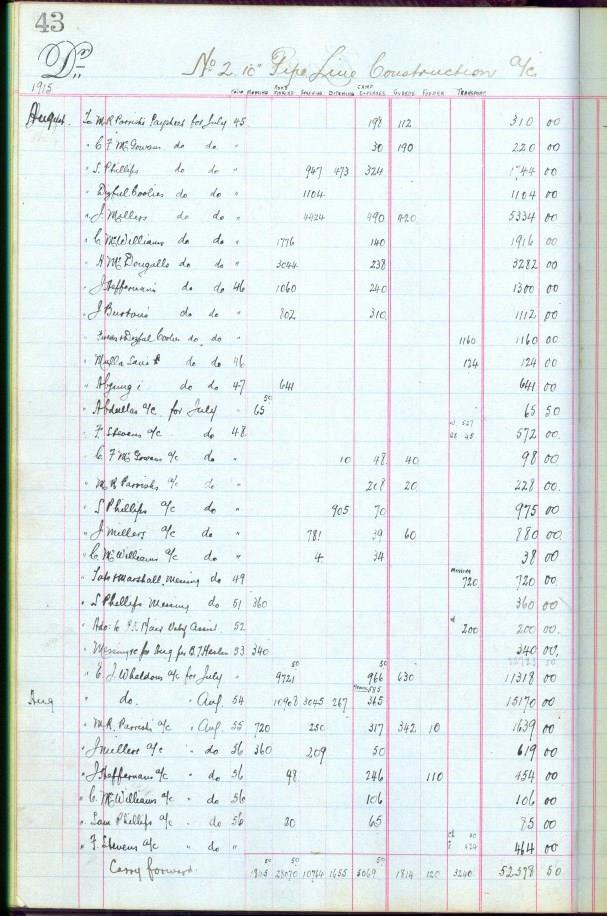 43
Dr
No 2. 10" Pipe Line Construction a/c
1915
FOLIO MESSING ROAD MAKING DITCHING CAMP EXPENSES GUARDS FODDER TRANSPORT
August To M.R. Parrishs Paysheet for July 45 198 112 310 00
" C F McGowans do do " 30 190 220 00
" S. Phillips do do " 947 473 324 44 00
" Dizful Coolies do do " 1104 1104 00
" J Millers do do " 4424 490 420 5334 00
" C McWilliams do do " 1776 140 1916 00
" A McDougalls do do " 3044 238 3282 00
" J Heffernans do do 46 1060 240 1300 00
" J Burtons do do " 802 310 1112 00
" Dizful Coolies do do " 1160 1160 00
" Mulla do do 46 124 124 00
" do do 47 641 641 00
" Abdullas a/c for July " 65 50 65 50
" F Stevens a/c do 48 527 45 572 00
" C. F McGowans a/c do " 10 48 40 98 00
" M R Parrishs a/c do " 208 20 228 00
" S Phillips a/c do " 905 70 975 00
" J Millers a/c do " 781 39 60 880 00
" C McWilliams a/c do " 4 34 38 00
" Marshall, Messing do 49 720 720 00
" S Phillips Messing do 51 360 360 00
" 52 200 200 00
" Messing for Aug for B.T. 53 340 340 00
" E. J. Wheldons a/c for July 9721 50 966 50 630 11318 00
Aug " do. " Aug 54 10908 3045 267 585 365 15170 00
" M.R. Parrishs a/c " Aug 55 720 250 317 342 10 1639 00
" J Millers a/c " do 56 360 209 50 619 00
" J Heffernans a/c " do 56 98 246 110 454 00
" C. McWilliams a/c " do 56 106 106 00
" Sam Phillips a/c " do 56 20 65 85 00
" F. Stevens a/c " do " 40 424 464 00
Carry forward 1845 50 28070 50 10764 1655 5069 50 1814 120 3240 52578 50